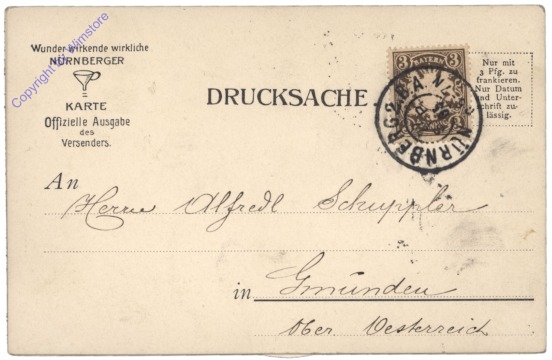 Wunder wirkende wirkliche
NÜRNBERGER
KARTE
Offizielle Ausgabe
des
Versenders.
Copyright by Filmstore
DRUCKSACHE
3 BAYERN 3
3 3
NÜRNBERG 2.B.A.
Nur mit
3 Pfg. zu
frankieren.
Nur Datum
und Unter-
schrift zu-
lässig.
An
Herrn Alfredl Schuppler
in Gmünden
Ober Oesterreich